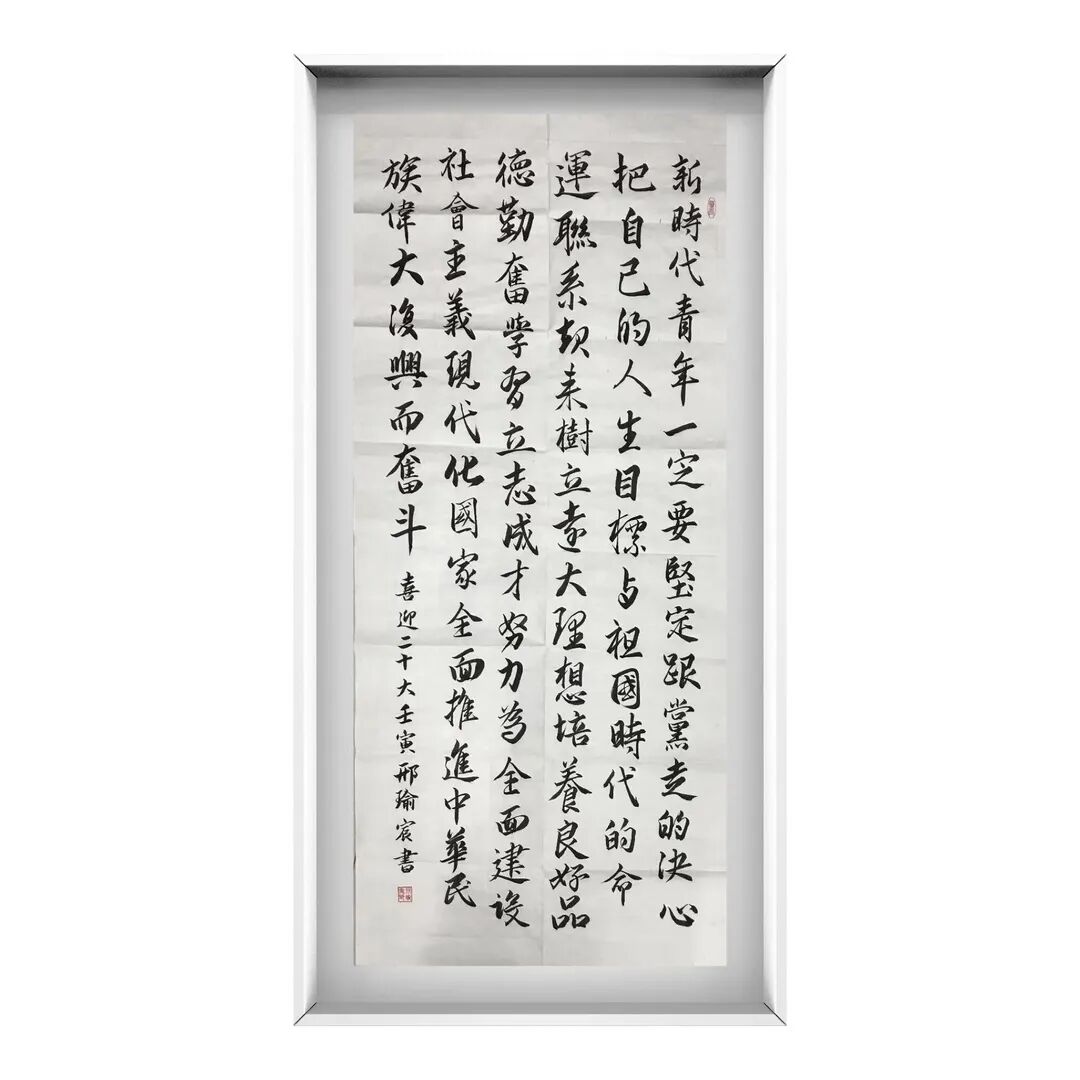 新時代青年一定要堅定跟黨走的決心
把自己的人生目標与祖國時代的命
運聯系起来樹立遠大理想培養良好品
德勤奮學習立志成才努力為全面建设
社會主義現代化國家全面推進中華民
族偉大復興而奮斗
喜迎二十大壬寅邢瑜宸書